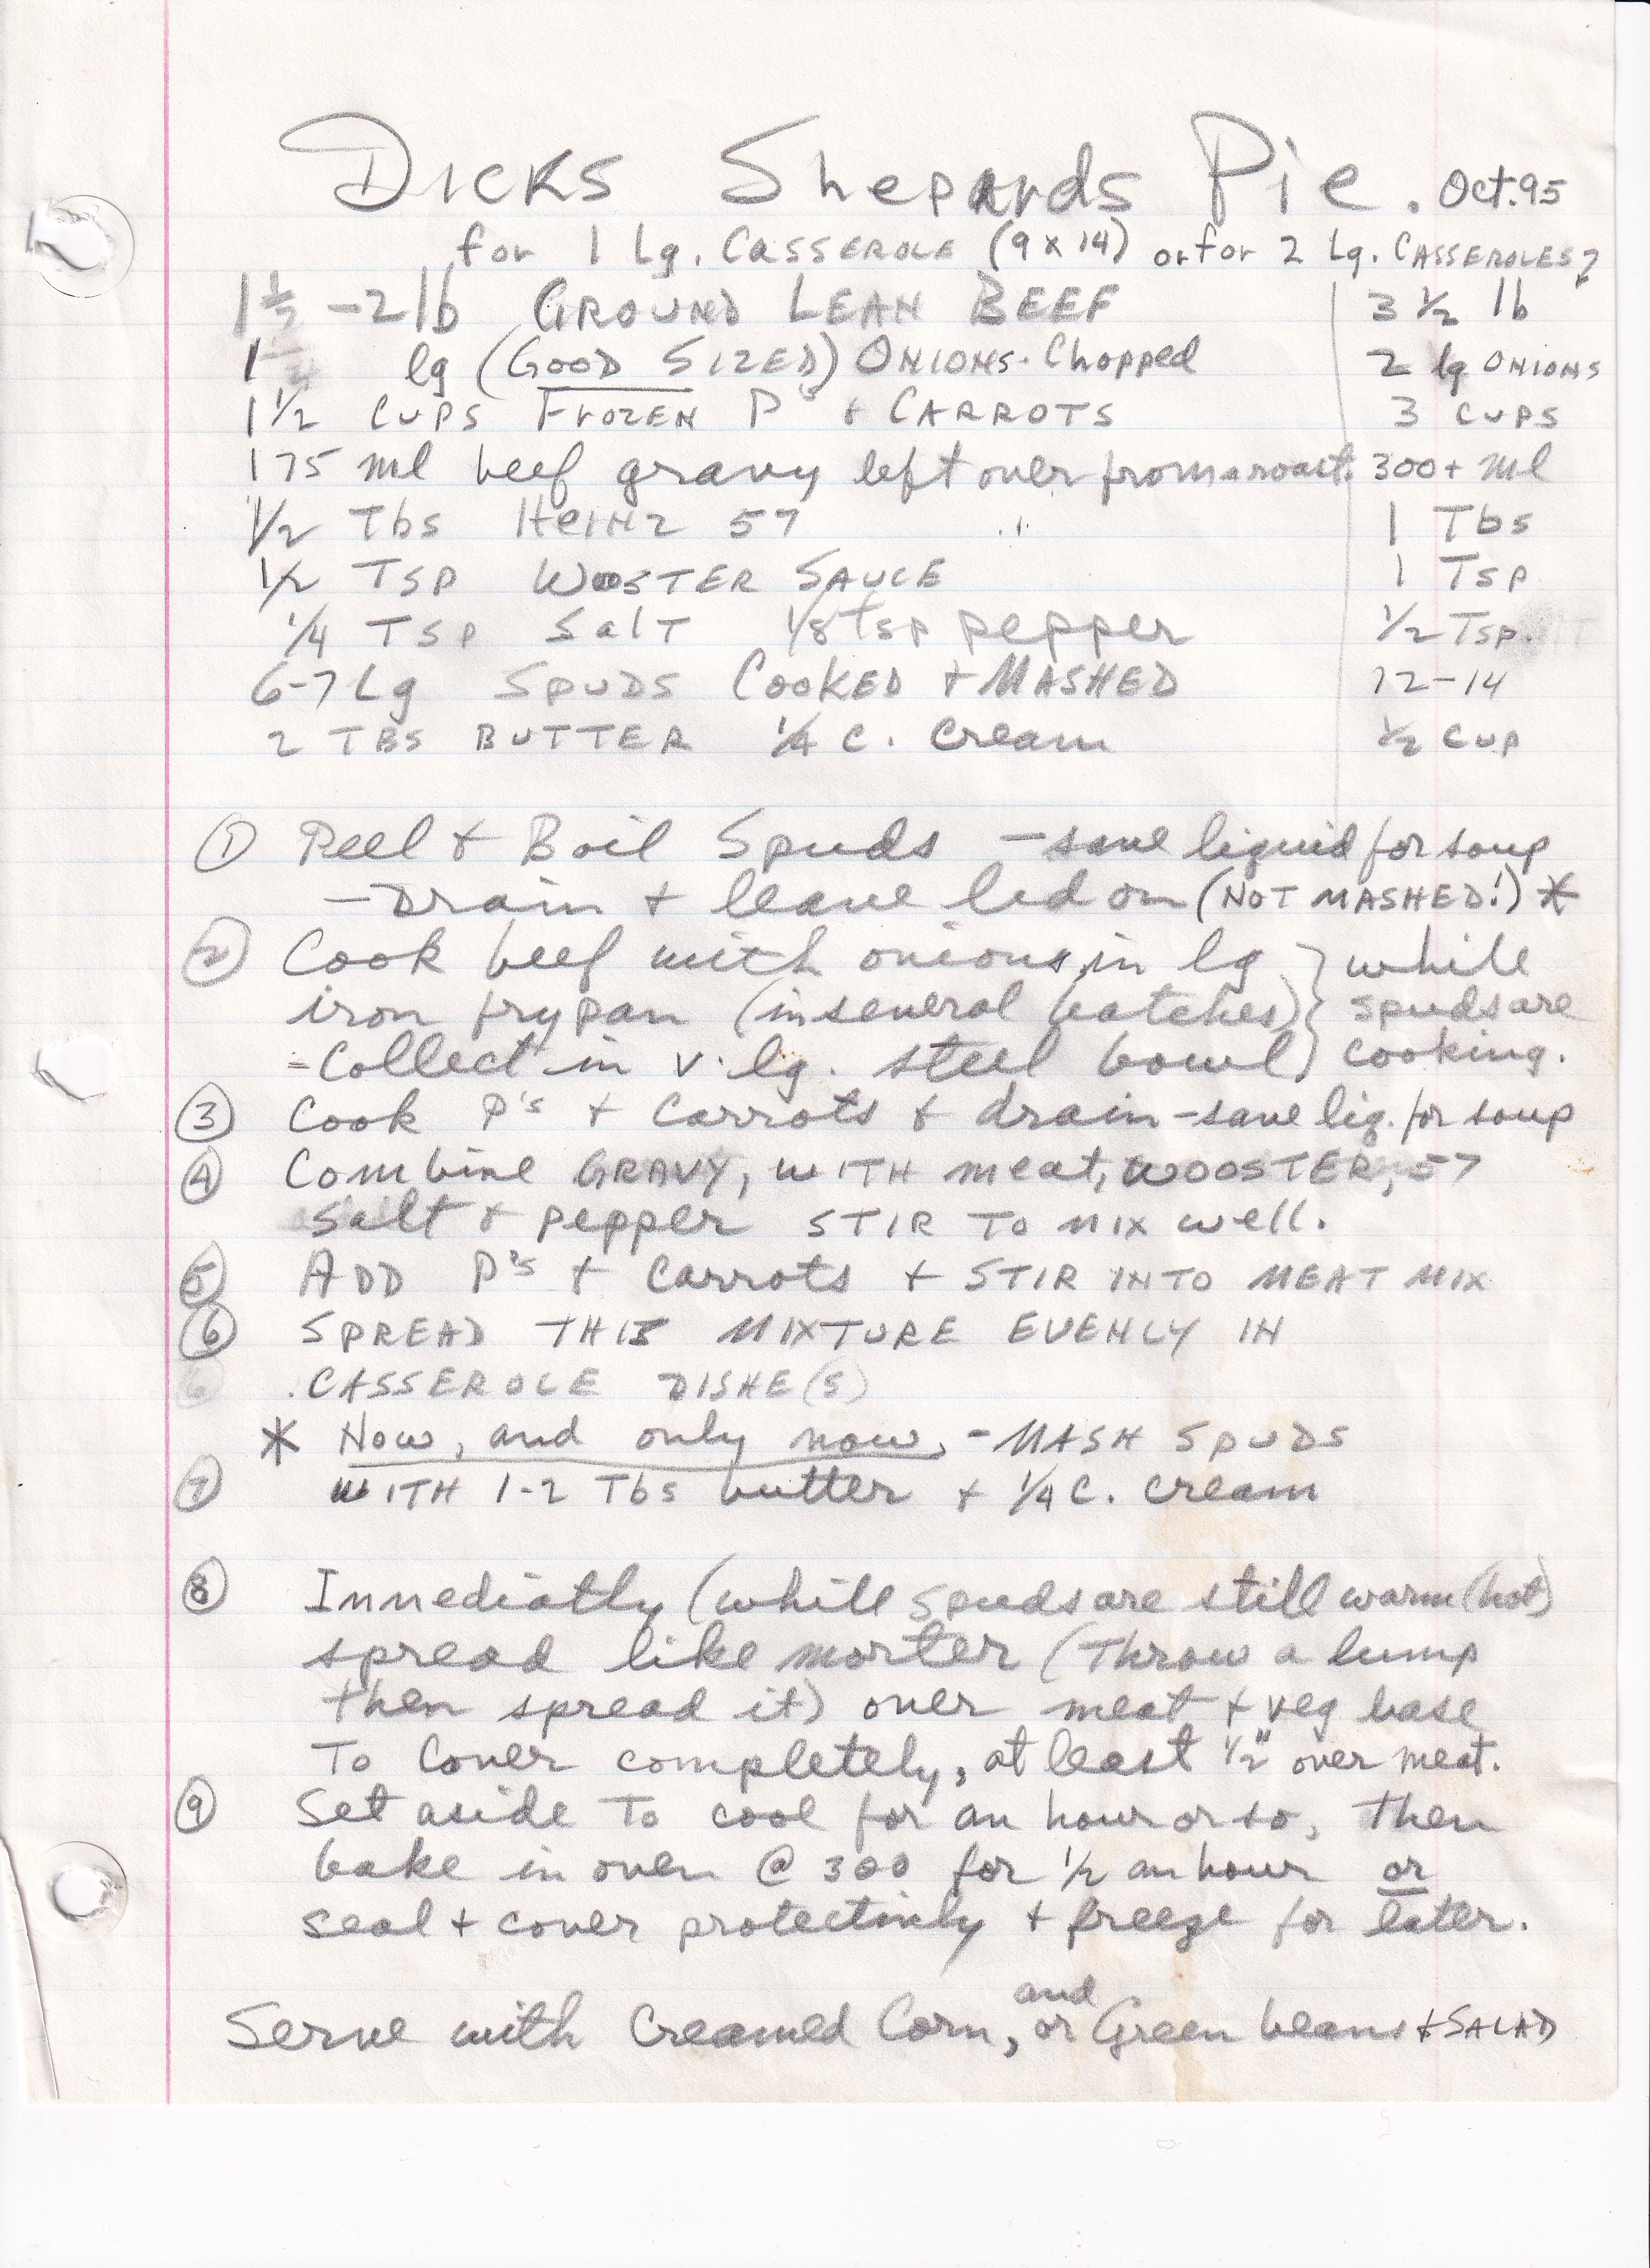 DICKS Shepards Pie. Oct. 95
for 1 Lg. CASSEROLE (9 x 14) or for 2 Lg. CASSEROLES?
1 1/2 - 2 lb GROUND LEAN BEEF 3 1/2 lb
1 lg (GOOD SIZED) ONIONS. Chopped 2 lg ONIONS
1 1/2 CUPS FROZEN P's + CARROTS 3 CUPS
175 ml beef gravy left over from a roast. 300+ Ml
1/2 Tbs HEINZ 57 1 Tbs
1/2 TSP WOOSTER SAUCE 1 Tsp
1/4 TSP SalT 1/8 Tsp pepper 1/2 Tsp.
6-7 Lg SPUDS COOKED + MASHED 12-14
2 TBS BUTTER 1/4 C. Cream 1/2 CUP
① Peel + Boil Spuds - save liquid for soup
- Drain + leave lid on (NOT MASHED!) *
② Cook beef with onions, in lg } while
iron frypan (in several batches) } spuds are
- Collect in v. lg. steel bowl } cooking.
③ Cook P's + Carrots + drain - save liq. for soup
④ Combine GRAVY, WITH meat, WOOSTER, 57
Salt + pepper STIR TO MIX well.
⑤ ADD P's + Carrots + STIR INTO MEAT MIX
⑥ SPREAD THIS MIXTURE EVENLY IN
CASSEROLE DISHE(S)
* Now, and only now, - MASH SPUDS
⑦ WITH 1-2 Tbs butter + 1/4 C. cream
⑧ Immediatly (while spuds are still warm (hot)
spread like morter (Throw a lump
then spread it) over meat + veg base
To Cover completely, at least 1/2" over meat.
⑨ Set aside To cool for an hour or so, Then
bake in oven @ 300 for 1/2 an hour or
seal + cover protectivly + freeze for later.
and
Serve with Creamed Corn, or Green beans + SALAD